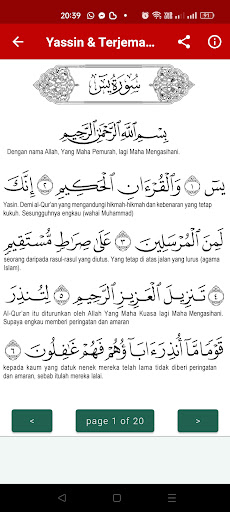 20:39
91
Yassin & Terjema...
سورة يس
بِسْمِ ٱللَّهِ ٱلرَّحْمَٰنِ ٱلرَّحِيمِ
Dengan nama Allah, Yang Maha Pemurah, lagi Maha Mengasihani.
يسٓ ١ وَٱلْقُرْءَانِ ٱلْحَكِيمِ ٢ إِنَّكَ
Yasin. Demi al-Qur'an yang mengandungi hikmah-hikmah dan kebenaran yang tetap
kukuh. Sesungguhnya engkau (wahai Muhammad)
لَمِنَ ٱلْمُرْسَلِينَ ٣ عَلَىٰ صِرَٰطٍ مُّسْتَقِيمٍ
seorang daripada rasul-rasul yang diutus. Yang tetap di atas jalan yang lurus (agama
Islam).
٤ تَنزِيلَ ٱلْعَزِيزِ ٱلرَّحِيمِ ٥ لِتُنذِرَ
Al-Qur'an itu diturunkan oleh Allah Yang Maha Kuasa lagi Maha Mengasihani.
Supaya engkau memberi peringatan dan amaran
قَوْمًا مَّآ أُنذِرَ ءَابَآؤُهُمْ فَهُمْ غَٰفِلُونَ ٦
kepada kaum yang datuk nenek mereka telah lama tidak diberi peringatan
dan amaran, sebab itulah mereka lalai.
<
page 1 of 20
>